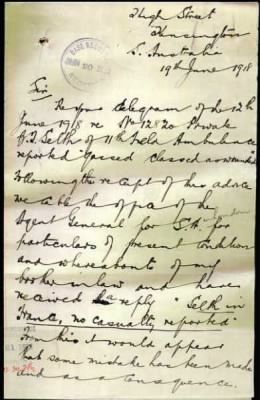 High Street
Kensington
S. Australia
19th June 1918
BASE RECORDS
Sir
Re your telegram of the 12th
June 1918 re No 12820 Private
Selth of 11th Field Ambulance
reported "Gassed classed as wounded"
Following the receipt of your advice
we cabled the office of the
Agent General for S.A.
for
particulars of present condition
and whereabouts of my
brother in law and have
received a reply "Selth in
France, no casualty reported"
From this it would appear
that some mistake has been made
and as a consequence.